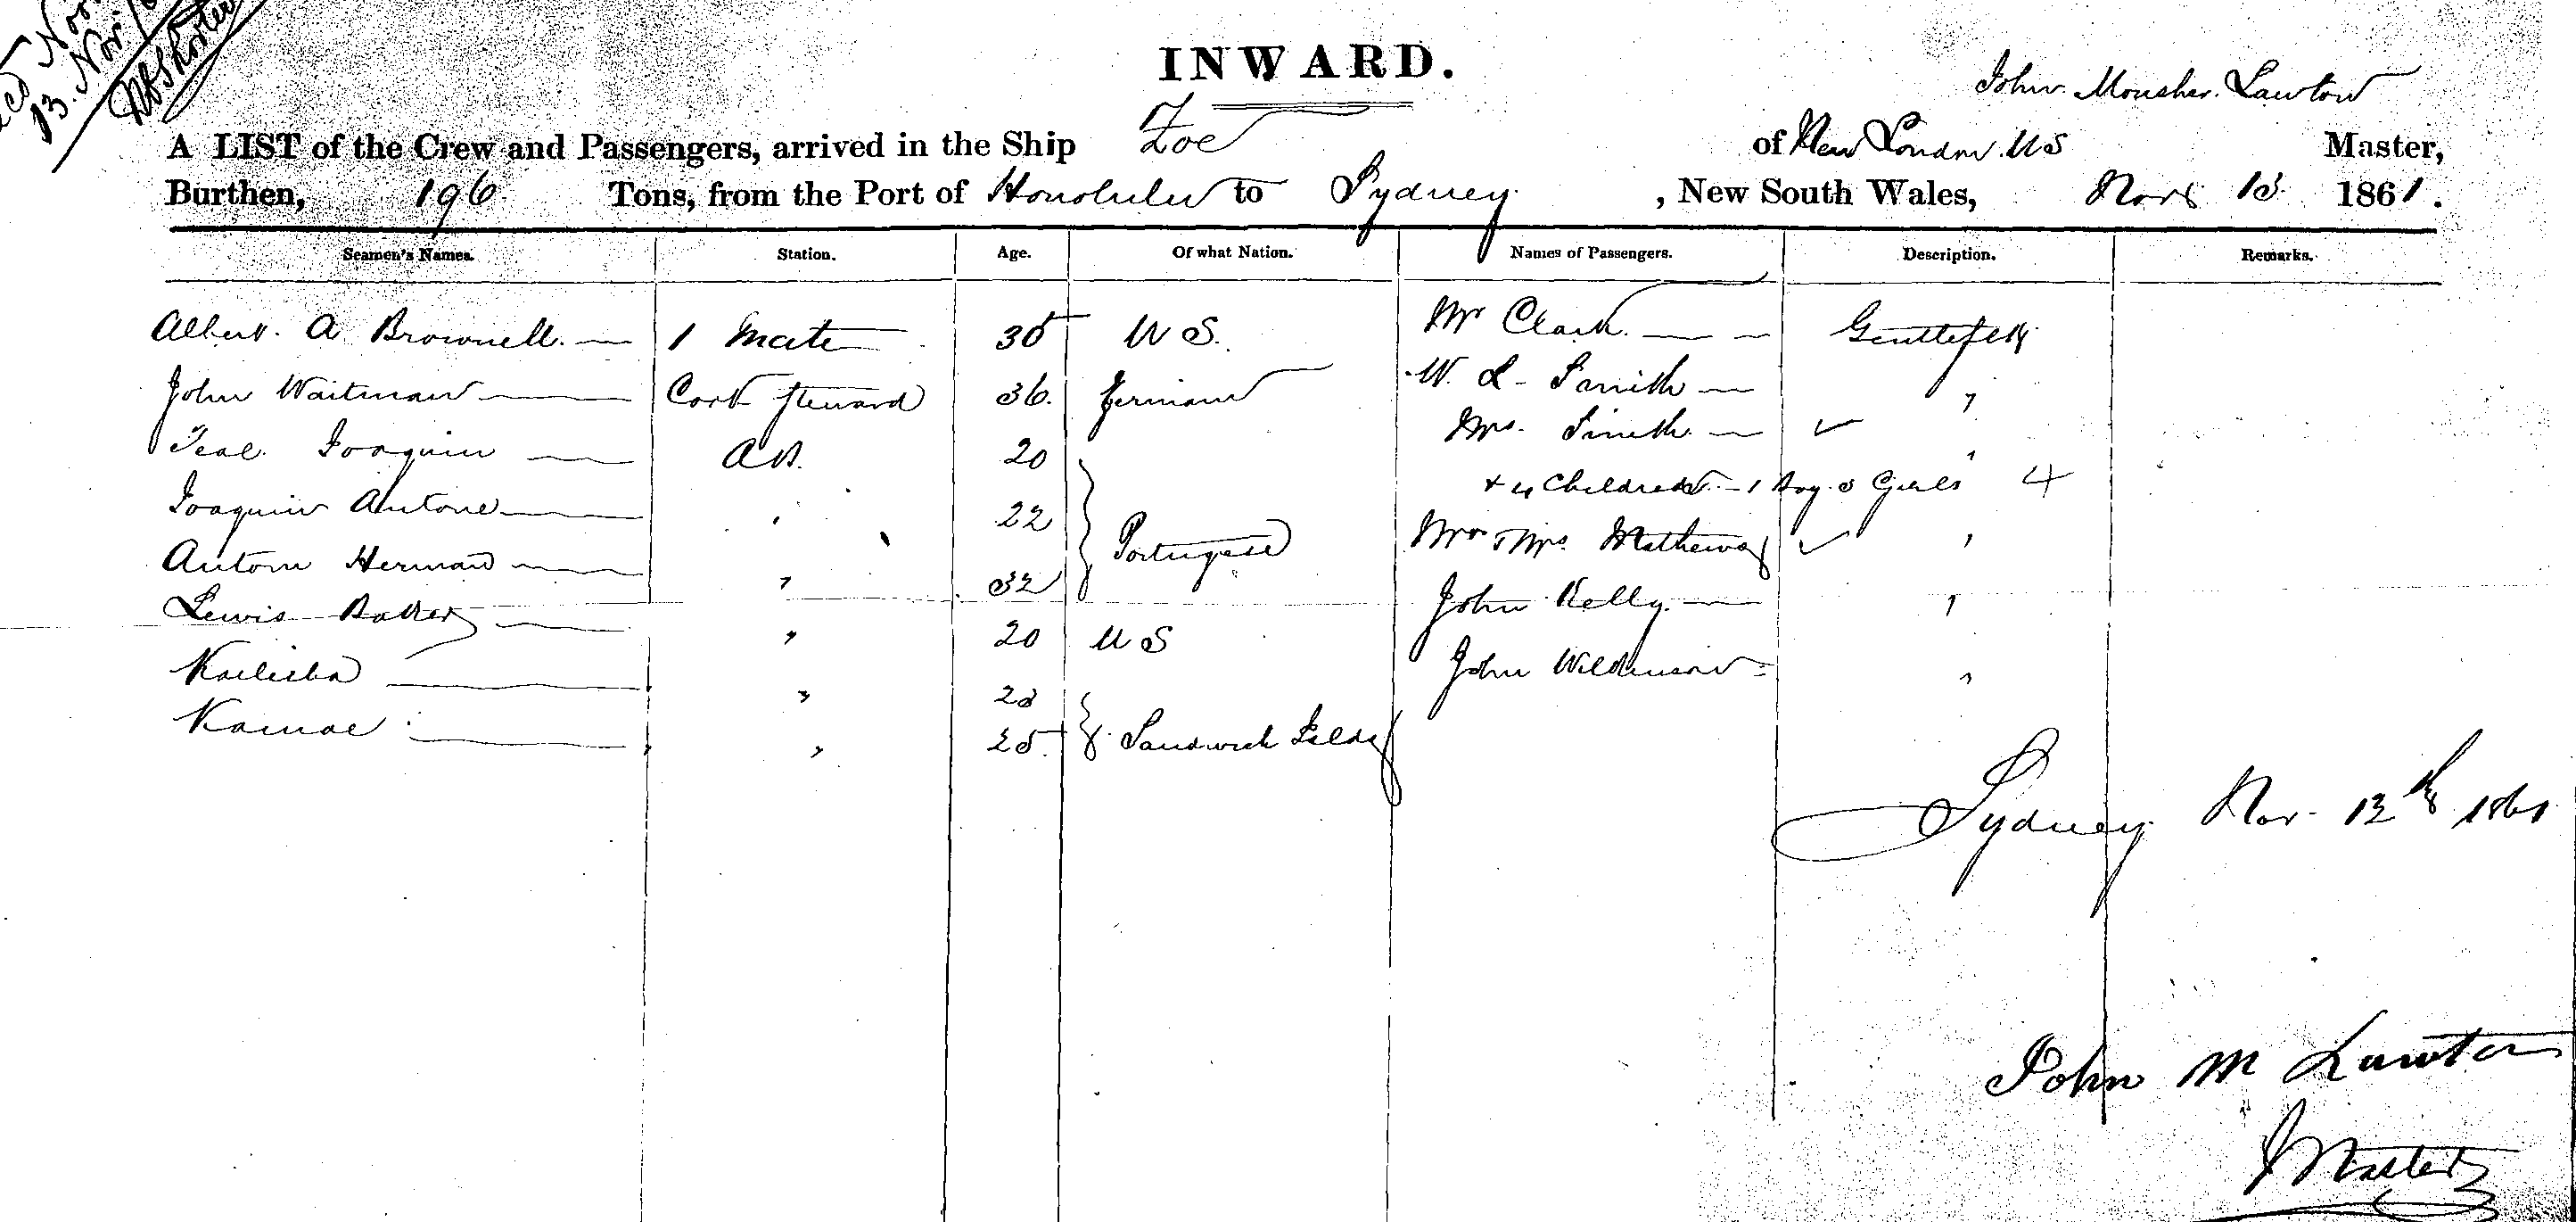 13. Nov.
INWARD.
John Mousher Lawton
A LIST of the Crew and Passengers, arrived in the Ship Zoe of New London US Master,
Burthen, 196 Tons, from the Port of Honolulu to Sydney, New South Wales, Novr 13 1861.
Seamen's Names. Station. Age. Of what Nation. Names of Passengers. Description. Remarks.
Albert A Brownell 1 Mate 35 U S. Mr Clark
John Waitman Cook Steward 36 German W. L. Smith "
Joaquin AB. 20 Mrs. Smith "
+ 4 Children - 1 Boy 3 Girls 4
Joaquin Antone " 22 Portuguese Mr & Mrs. Mathews "
Antone Herman " 32 John Kelly "
Lewis Baker " 20 U S John Wilkinson "
" 23
Kamae " 25 Sandwich Islds
Sydney Nov. 13th 1861
John M Lawton
Master